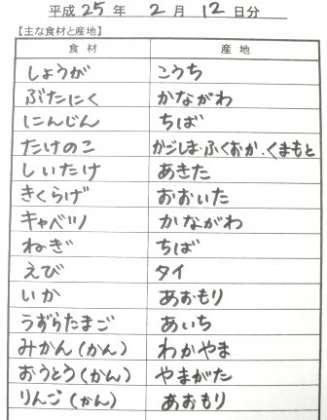 平成25年 2月 12日分
【主な食材と産地】
食材 産地
しょうが こうち
ぶたにく かながわ
にんじん ちば
たけのこ かごしま・ふくおか・くまもと
しいたけ あきた
きくらげ おおいた
キャベツ かながわ
ねぎ ちば
えび タイ
いか あおもり
うずらたまご あいち
みかん(かん) わかやま
おうとう(かん) やまがた
りんご(かん) あおもり